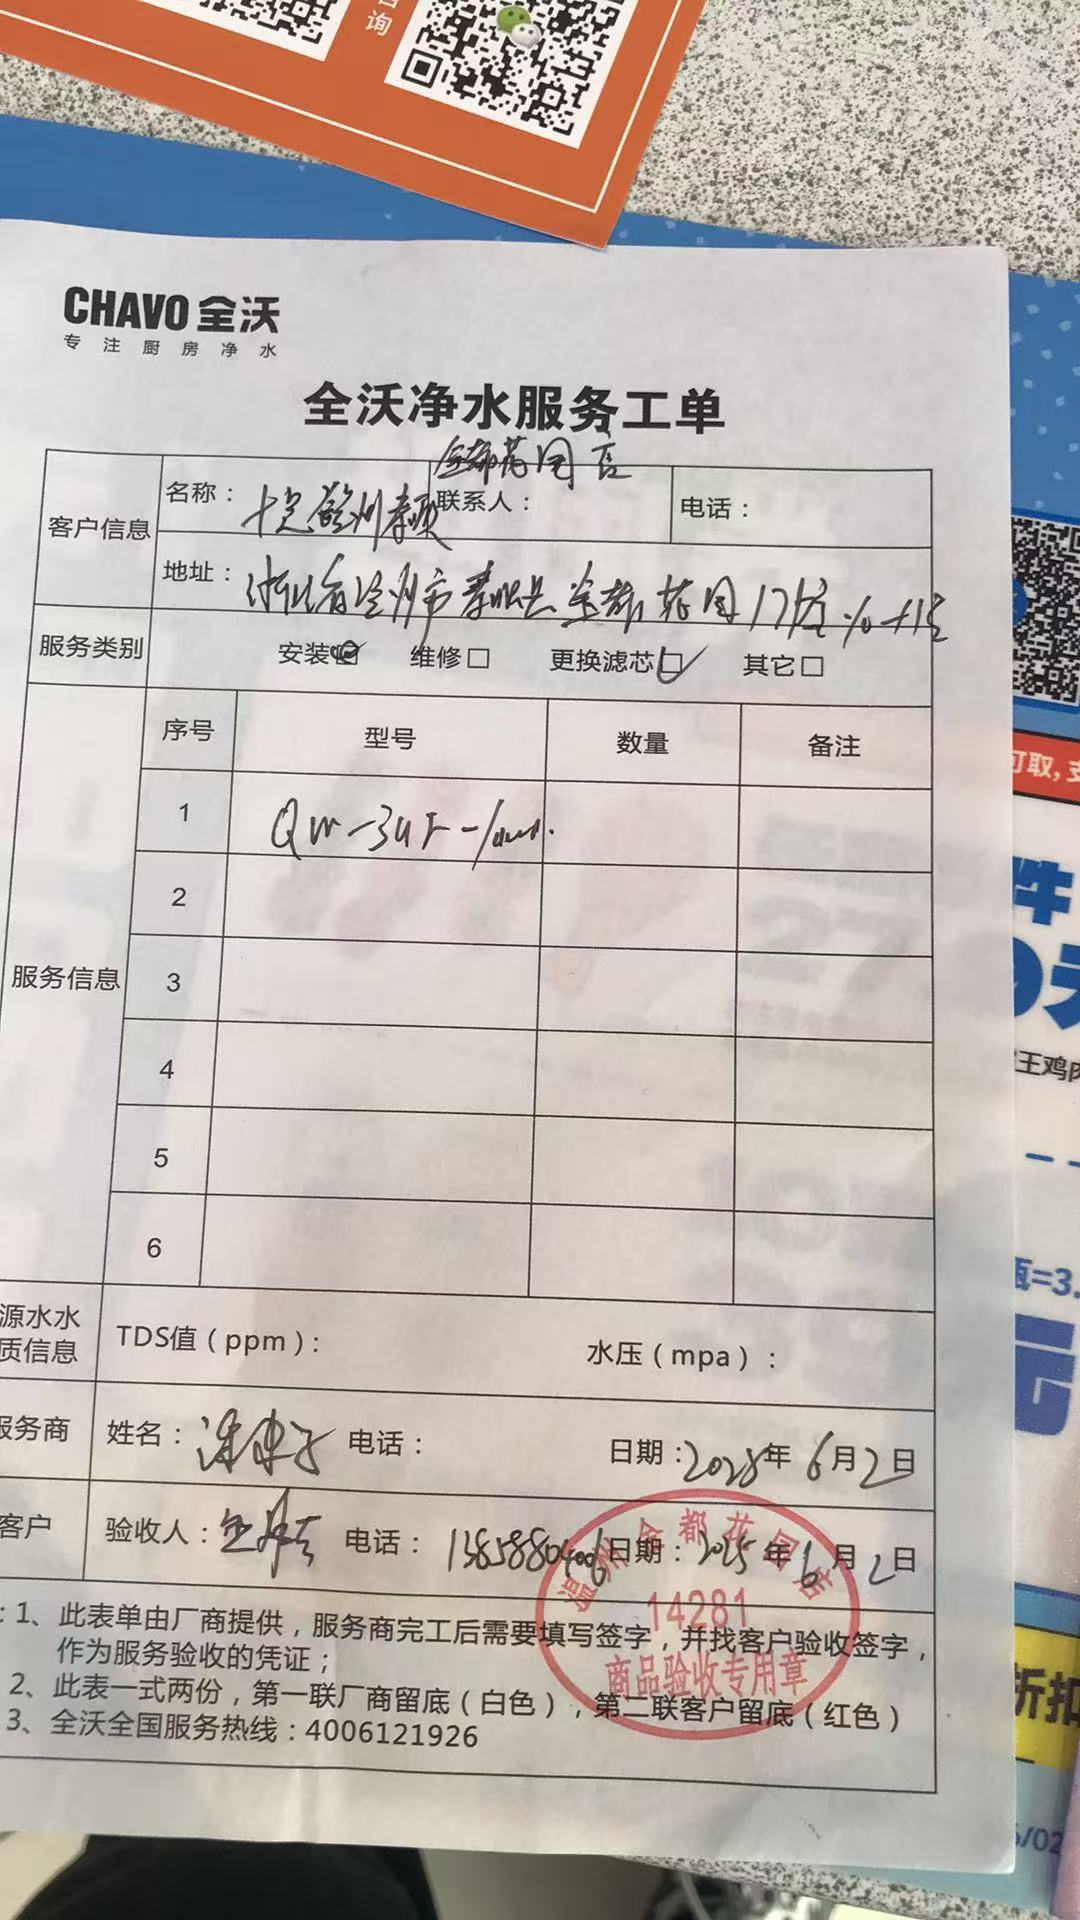 询
CHAVO 全沃
专注厨房净水
全沃净水服务工单
金都花园店
客户信息
名称：
联系人：
电话：
地址：浙江省温州市 金都花园17幢
服务类别
安装 维修□ 更换滤芯☑ 其它□
服务信息
序号 型号 数量 备注
1 QW-3UF-
2
3
4
5
6
源水水
质信息
TDS值（ppm）：
水压（mpa）：
服务商
姓名：
电话：
日期：2025年6月2日
客户
验收人：
电话：13858804006
日期：2025年6月2日
温州金都花园店
14281
商品验收专用章
：1、此表单由厂商提供，服务商完工后需要填写签字，并找客户验收签字，
作为服务验收的凭证；
2、此表一式两份，第一联厂商留底（白色），第二联客户留底（红色）
3、全沃全国服务热线：4006121926
可取,支
件
王鸡肉
瓶=3.
元
折扣
6/02